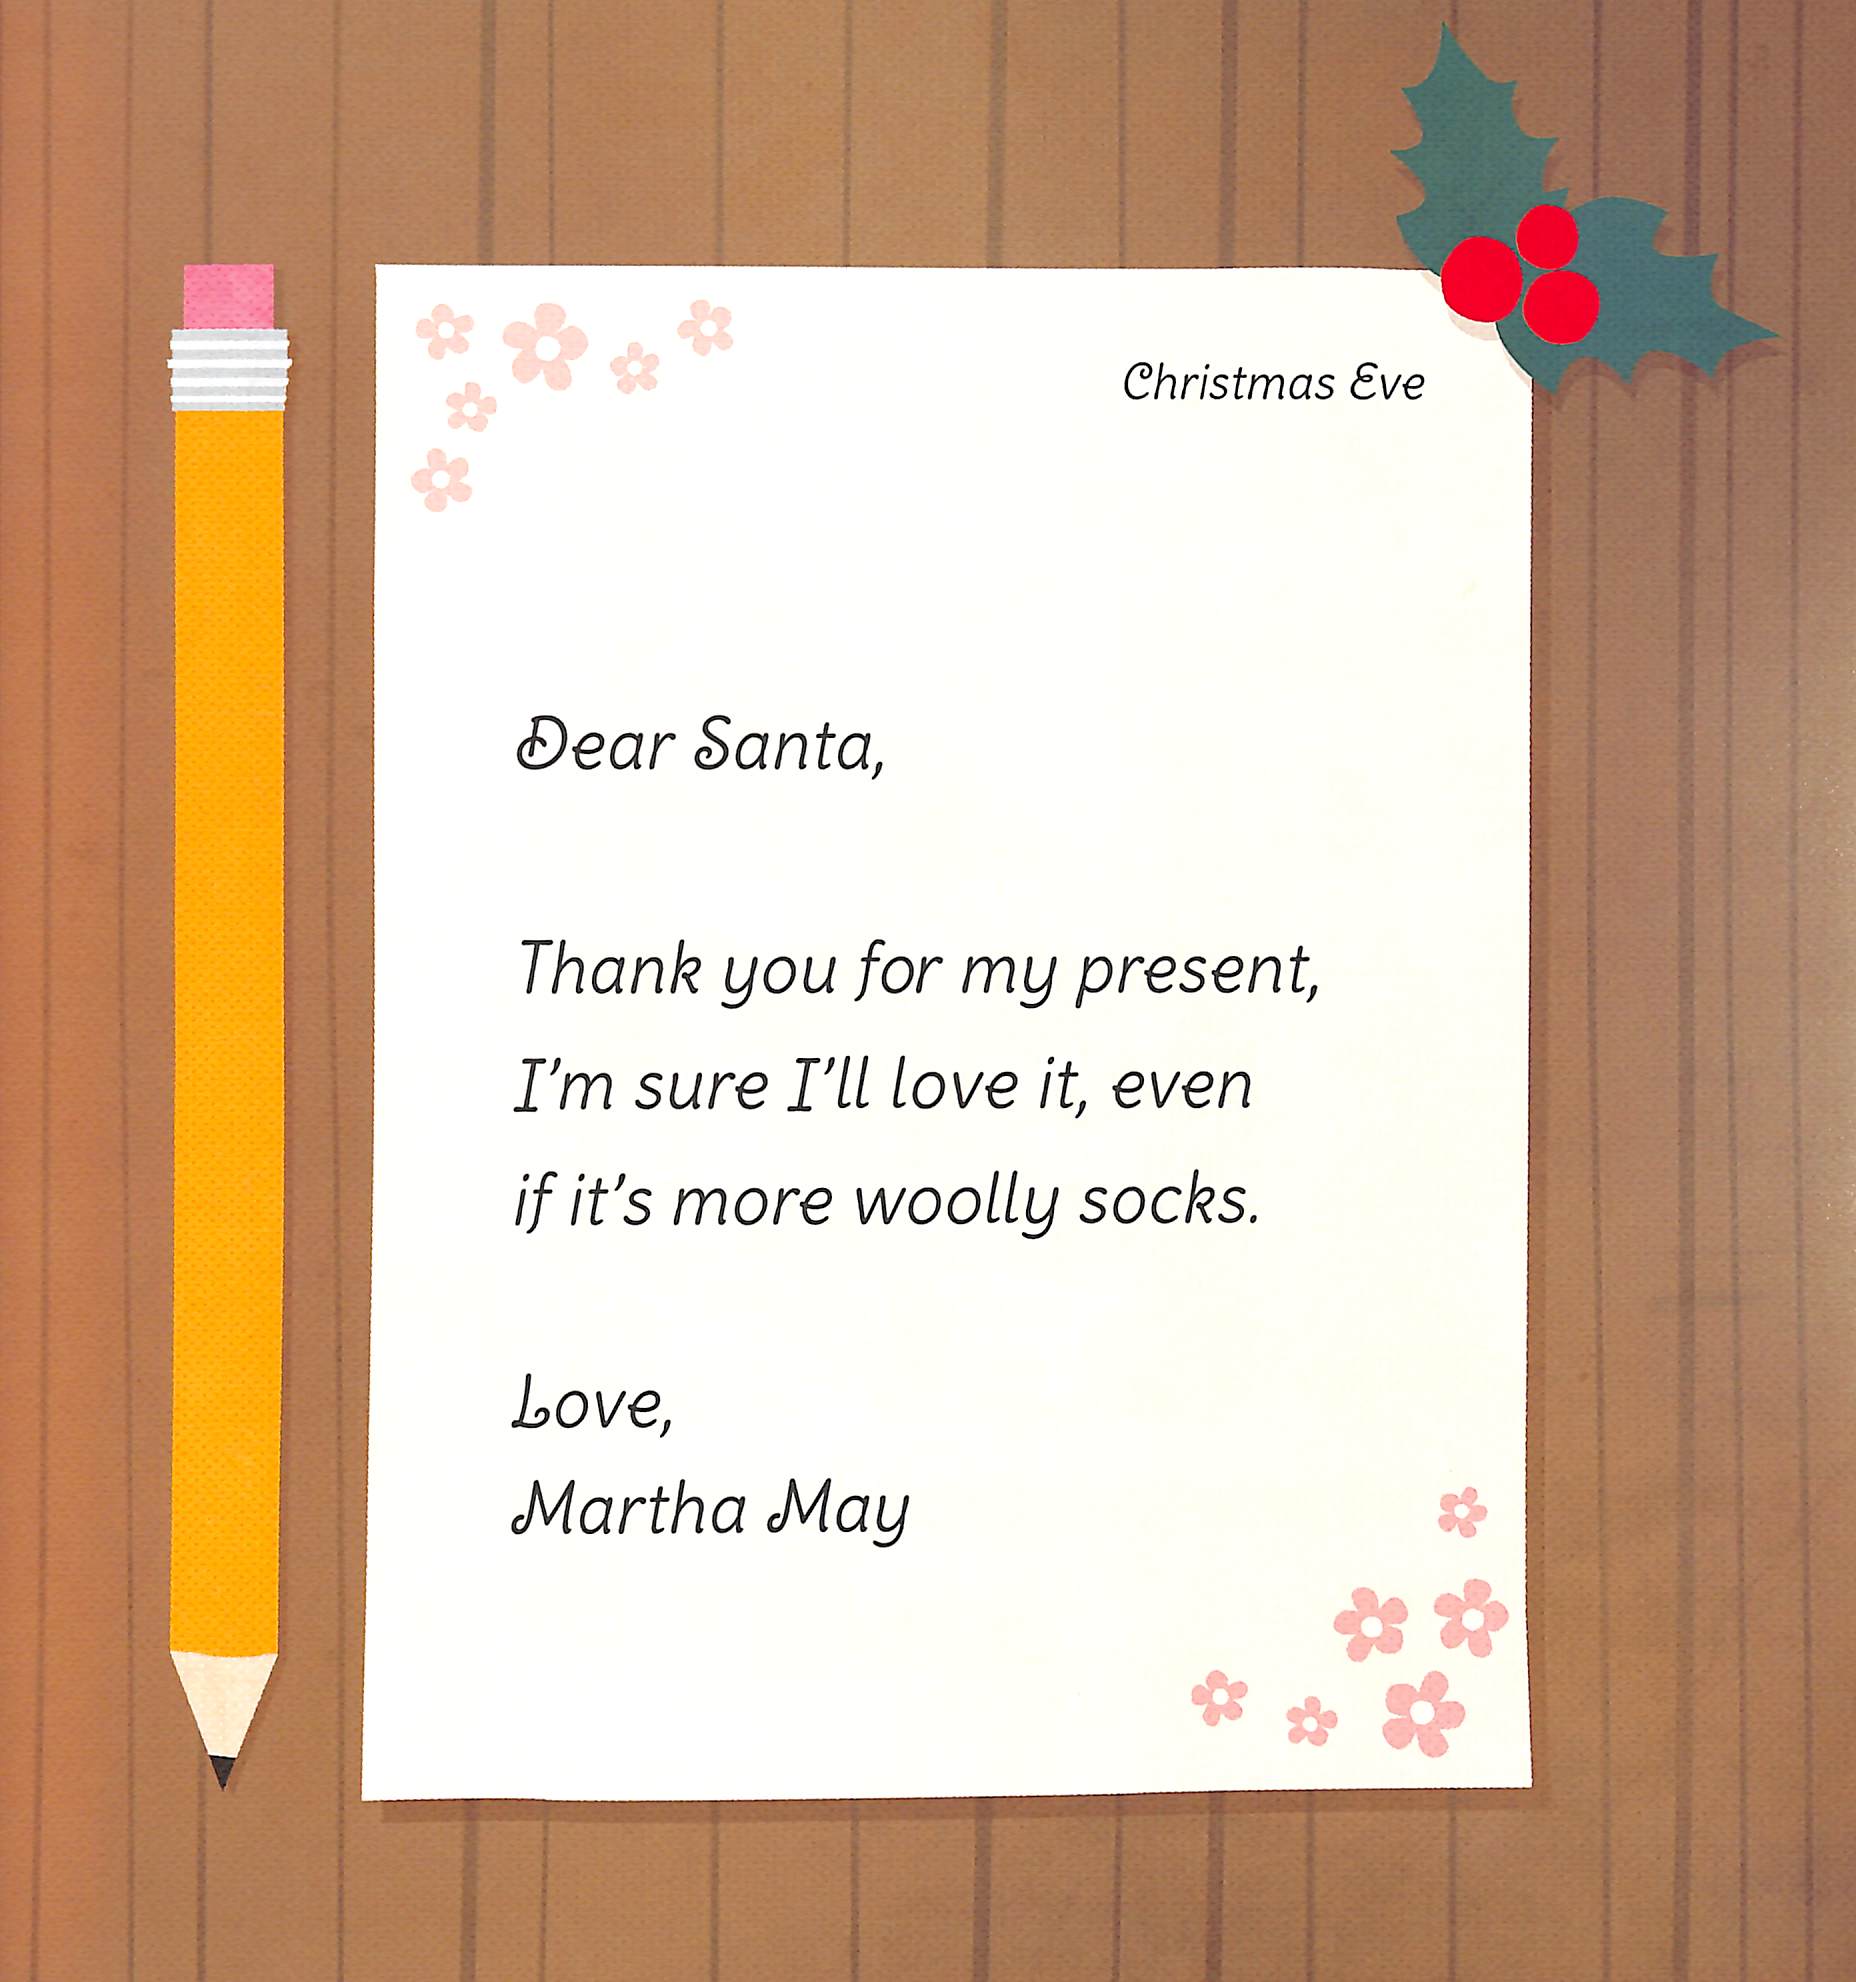 Christmas Eve
Dear Santa,
Thank you for my present,
I’m sure I’ll love it, even
if it’s more woolly socks.
Love,
Martha May